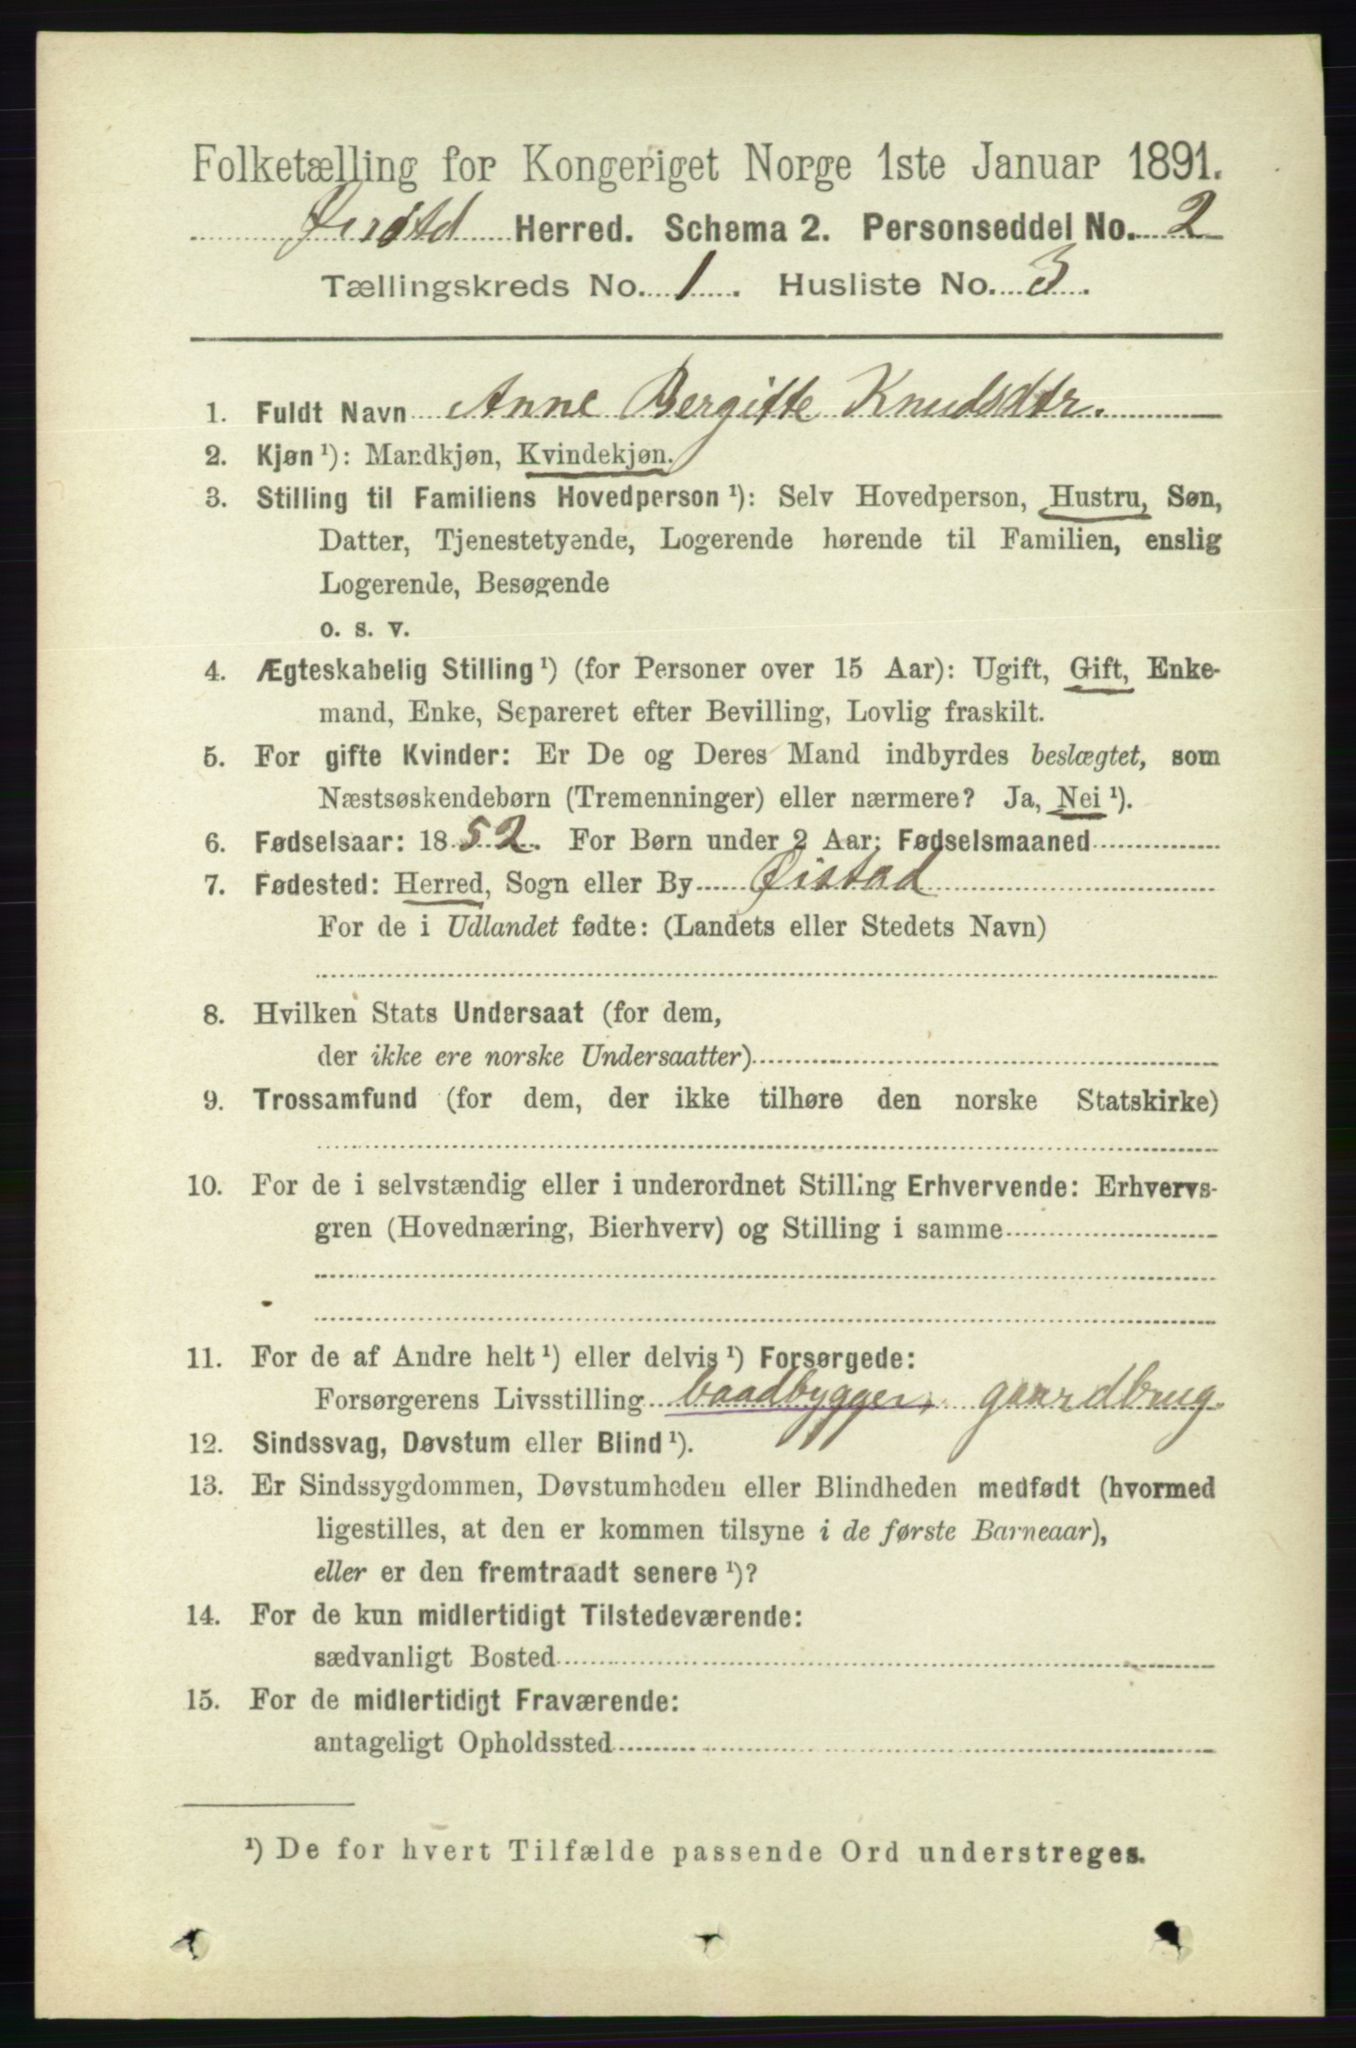 Folketælling for Kongeriget Norge 1ste Januar 1891.
Herred. Schema 2. Personseddel No. 2
Tællingskreds No. 1. Husliste No. 3.
1. Fuldt Navn Anne Bergitte Knudsdtr.
2. Kjøn ¹): Mandkjøn, Kvindekjøn.
3. Stilling til Familiens Hovedperson ¹): Selv Hovedperson, Hustru, Søn,
Datter, Tjenestetyende, Logerende hørende til Familien, enslig
Logerende, Besøgende
o. s. v.
4. Ægteskabelig Stilling ¹) (for Personer over 15 Aar): Ugift, Gift, Enke-
mand, Enke, Separeret efter Bevilling, Lovlig fraskilt.
5. For gifte Kvinder: Er De og Deres Mand indbyrdes beslægtet, som
Næstsøskendebørn (Tremenninger) eller nærmere? Ja, Nei ¹).
6. Fødselsaar: 1852. For Børn under 2 Aar: Fødselsmaaned
7. Fødested: Herred, Sogn eller By Øistad
For de i Udlandet fødte: (Landets eller Stedets Navn)
8. Hvilken Stats Undersaat (for dem,
der ikke ere norske Undersaatter)
9. Trossamfund (for dem, der ikke tilhøre den norske Statskirke)
10. For de i selvstændig eller i underordnet Stilling Erhvervende: Erhvervs-
gren (Hovednæring, Bierhverv) og Stilling i samme
11. For de af Andre helt ¹) eller delvis ¹) Forsørgede:
Forsørgerens Livsstilling baadbygger, gaardbrug.
12. Sindssvag, Døvstum eller Blind ¹).
13. Er Sindssygdommen, Døvstumheden eller Blindheden medfødt (hvormed
ligestilles, at den er kommen tilsyne i de første Barneaar),
eller er den fremtraadt senere ¹)?
14. For de kun midlertidigt Tilstedeværende:
sædvanligt Bosted
15. For de midlertidigt Fraværende:
antageligt Opholdssted
¹) De for hvert Tilfælde passende Ord understreges.